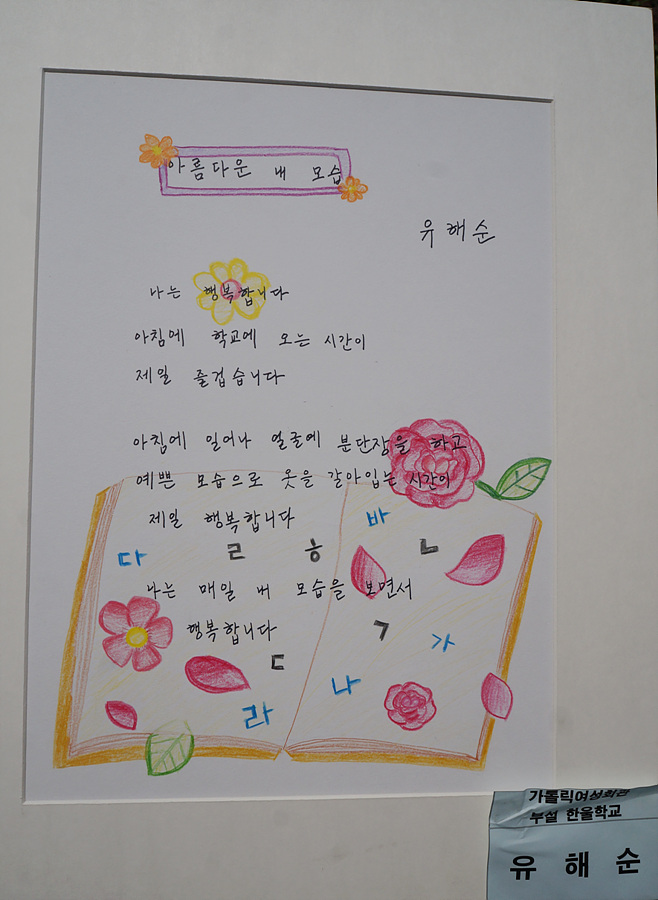 아름다운 내 모습
유해순
나는 행복합니다
아침에 학교에 오는 시간이
제일 즐겁습니다
아침에 일어나 얼굴에 분단장을 하고
예쁜 모습으로 옷을 갈아입는 시간이
제일 행복합니다
바
다 ㄹ ㅎ ㄴ
나는 매일 내 모습을 보면서
행복합니다
ㄱ
ㄷ 가
라 나
가톨릭여성회관
부설 한울학교
유해순